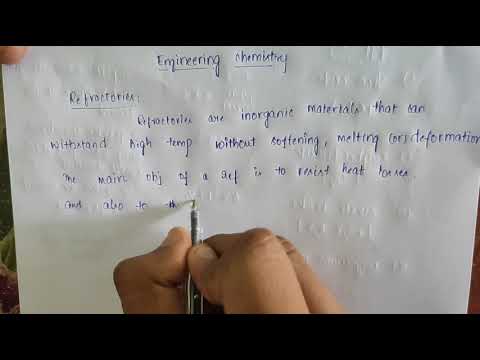 Engineering chemistry
Refractories:
Refractories are inorganic materials that can
withstand high temp without softening, melting (or) deformation
The main obj of a ref is to resist heat losses
and also to th